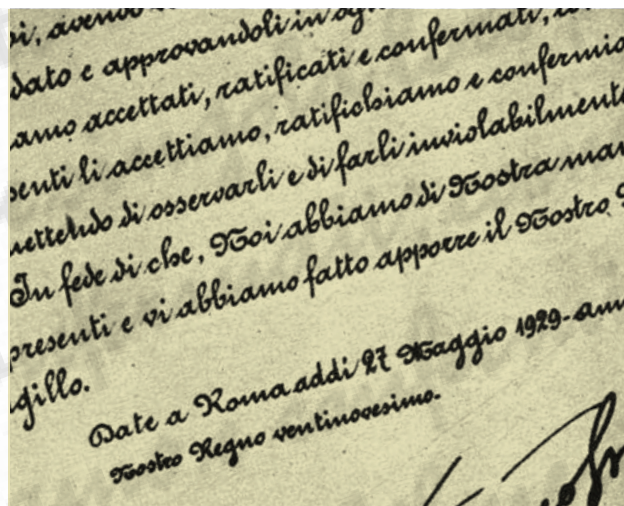 oi, avendo
dato e approvandoli in ogni
amo accettati, ratificati e confermati,
senti li accettiamo, ratifichiamo e confermia
mettendo di osservarli e di farli inviolabilmente
In fede di che, Noi abbiamo di Nostra man
presenti e vi abbiamo fatto apporre il Nostro
gillo.
Date a Roma addì 27 Maggio 1929-ann
Nostro Regno ventinovesimo.